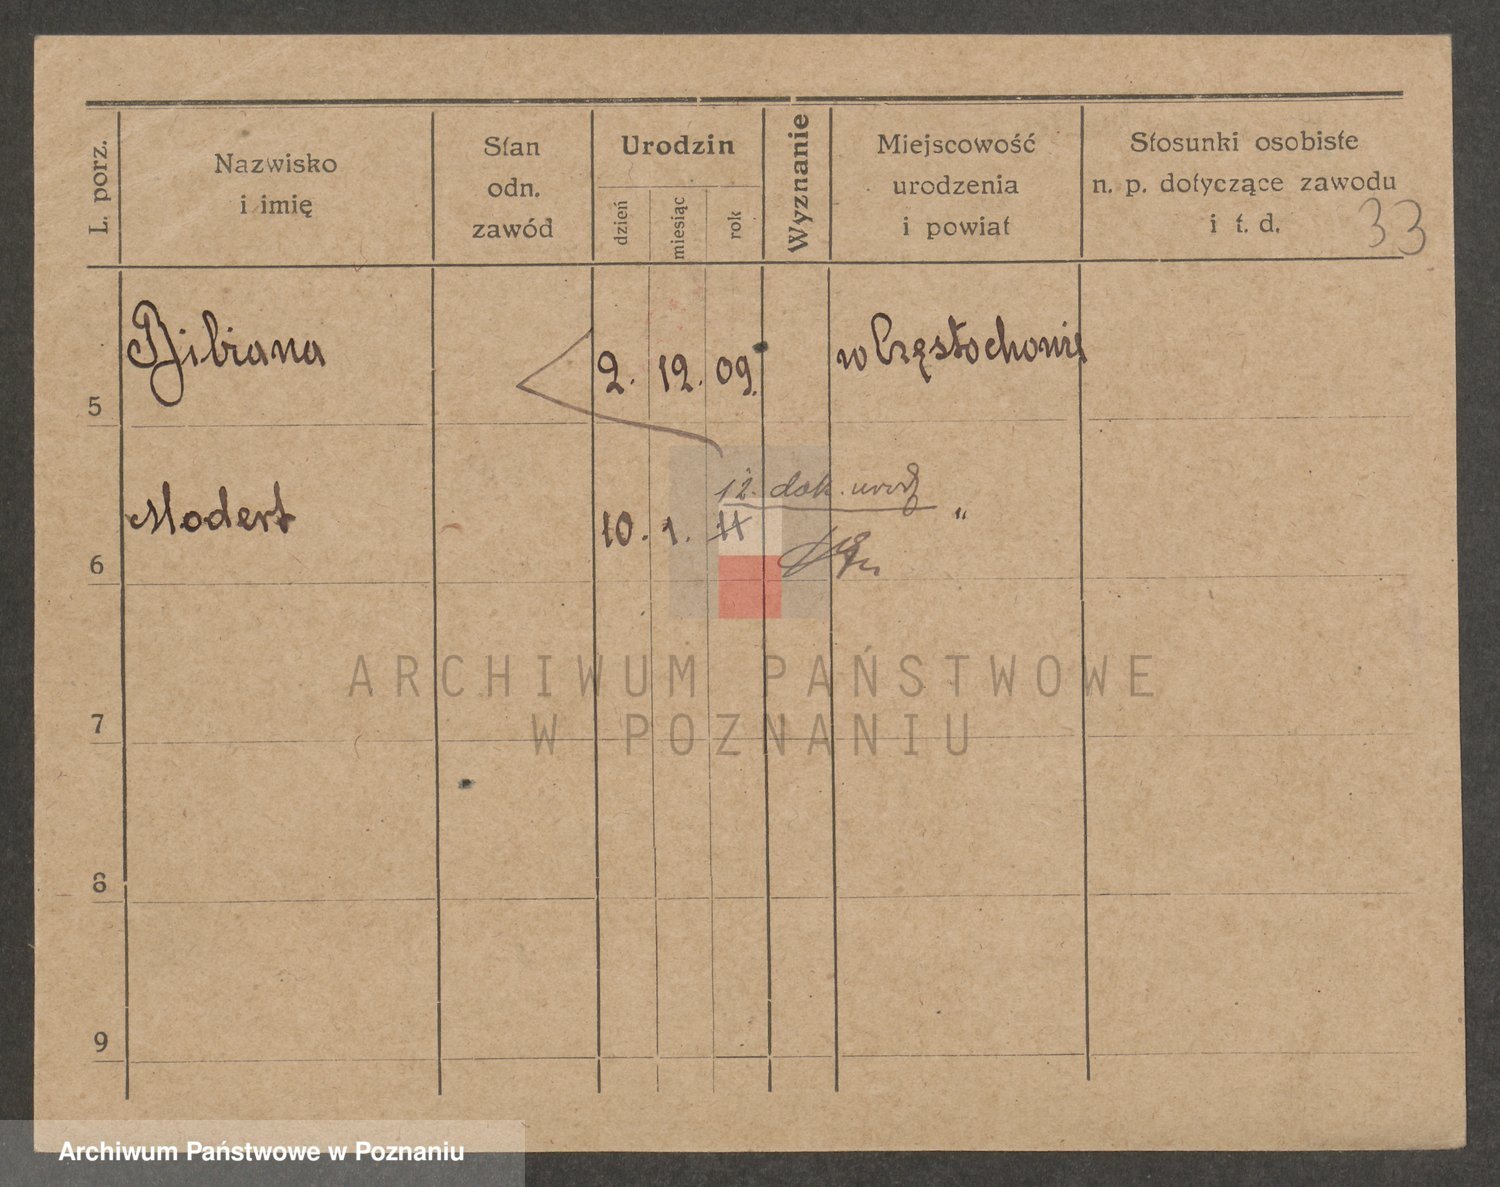 L. porz.
Nazwisko
i imię
Stan
odn.
zawód
Urodzin
dzień
miesiąc
rok
Wyznanie
Miejscowość
urodzenia
i powiat
Stosunki osobiste
n. p. dotyczące zawodu
i t. d.
33
5 Bibiana 2. 12. 09. w Częstochowie
12. dok. urodz
6 Modert 10. 1. 11 "
ARCHIWUM PAŃSTWOWE
W POZNANIU
7
8
9
Archiwum Państwowe w Poznaniu